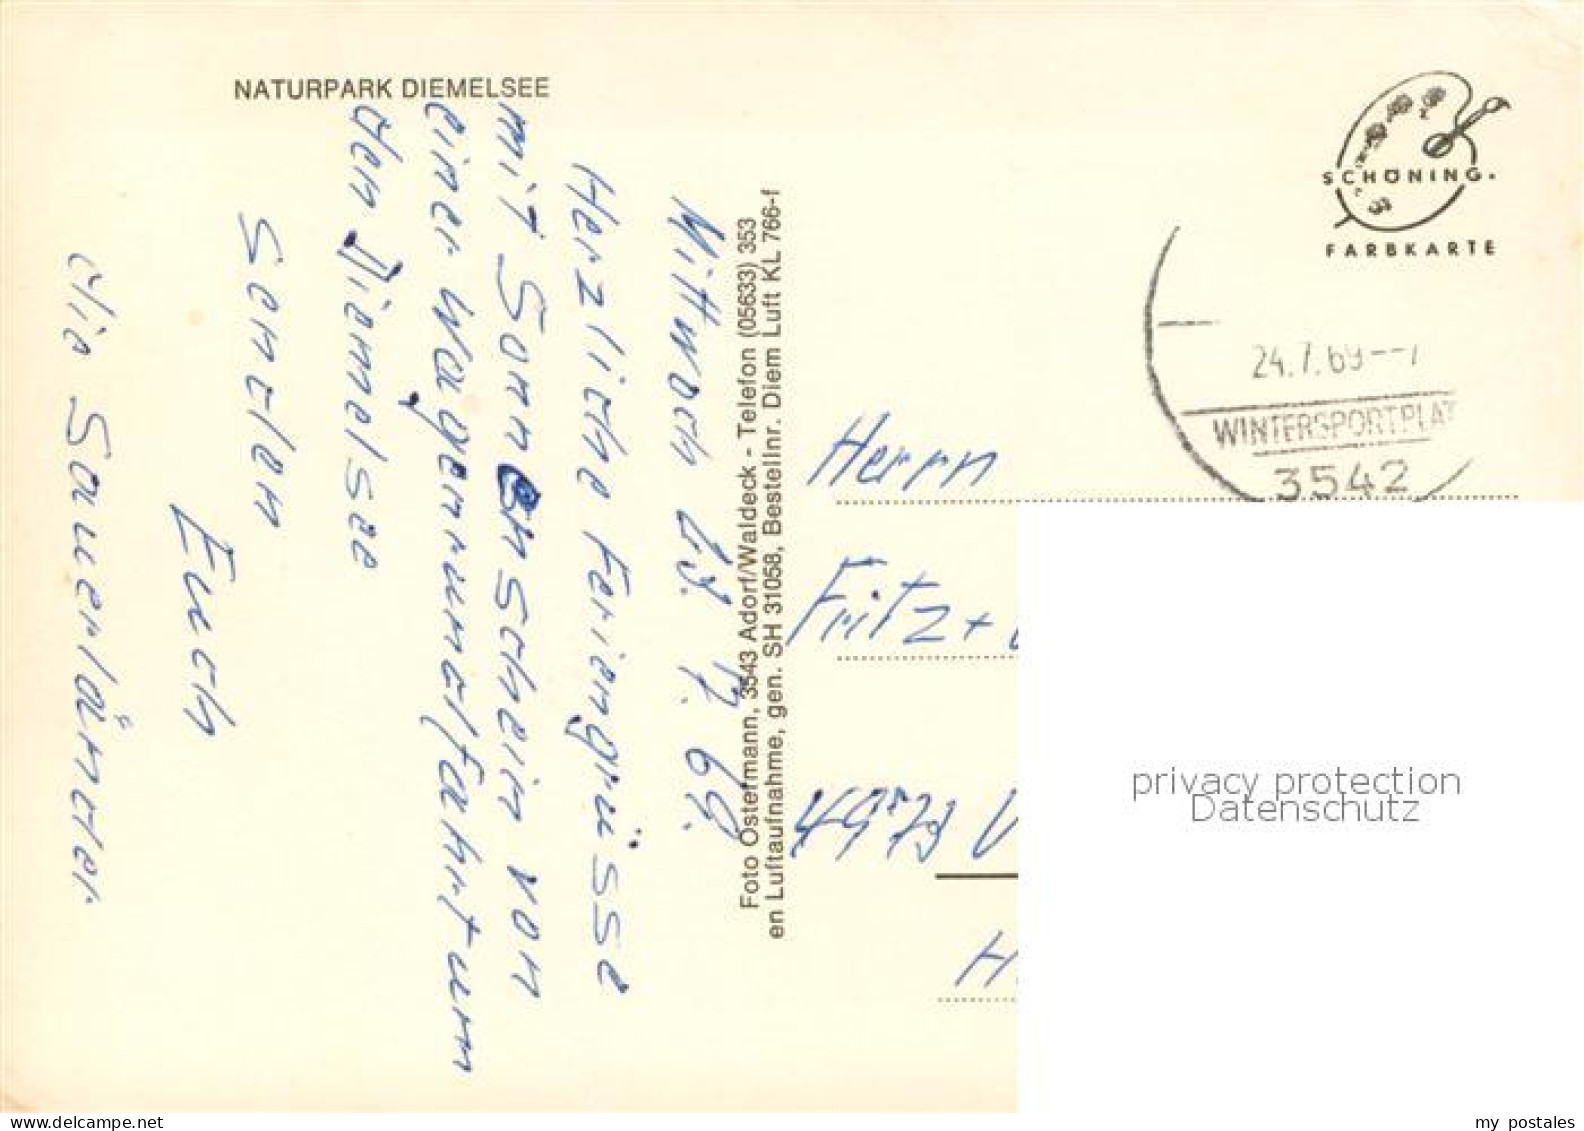 NATURPARK DIEMELSEE
Mittwoch 23. 7. 69.
Herzliche Feriengrüsse
mit Sonnenschein von
einer Wagenrundfahrt um
den Diemelsee
senden
Euch
die Sauerländer.
Foto Ostermann, 3543 Adorf/Waldeck - Telefon (05633) 353
en Luftaufnahme, gen. SH 31058, Bestellnr. Diem Luft KL 766-f
SCHÖNING.
FARBKARTE
24.7.69--7
WINTERSPORTPLAT
3542
Herrn
Fritz +
4973 V
H
privacy protection
Datenschutz
my postales